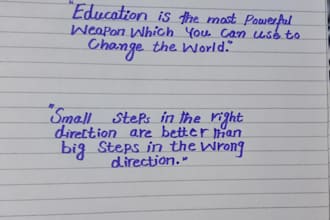 "Education is the most Powerful
Weapon Which You Can use to
Change the World."
"Small Steps in the right
direction are better than
big Steps in the Wrong
direction."